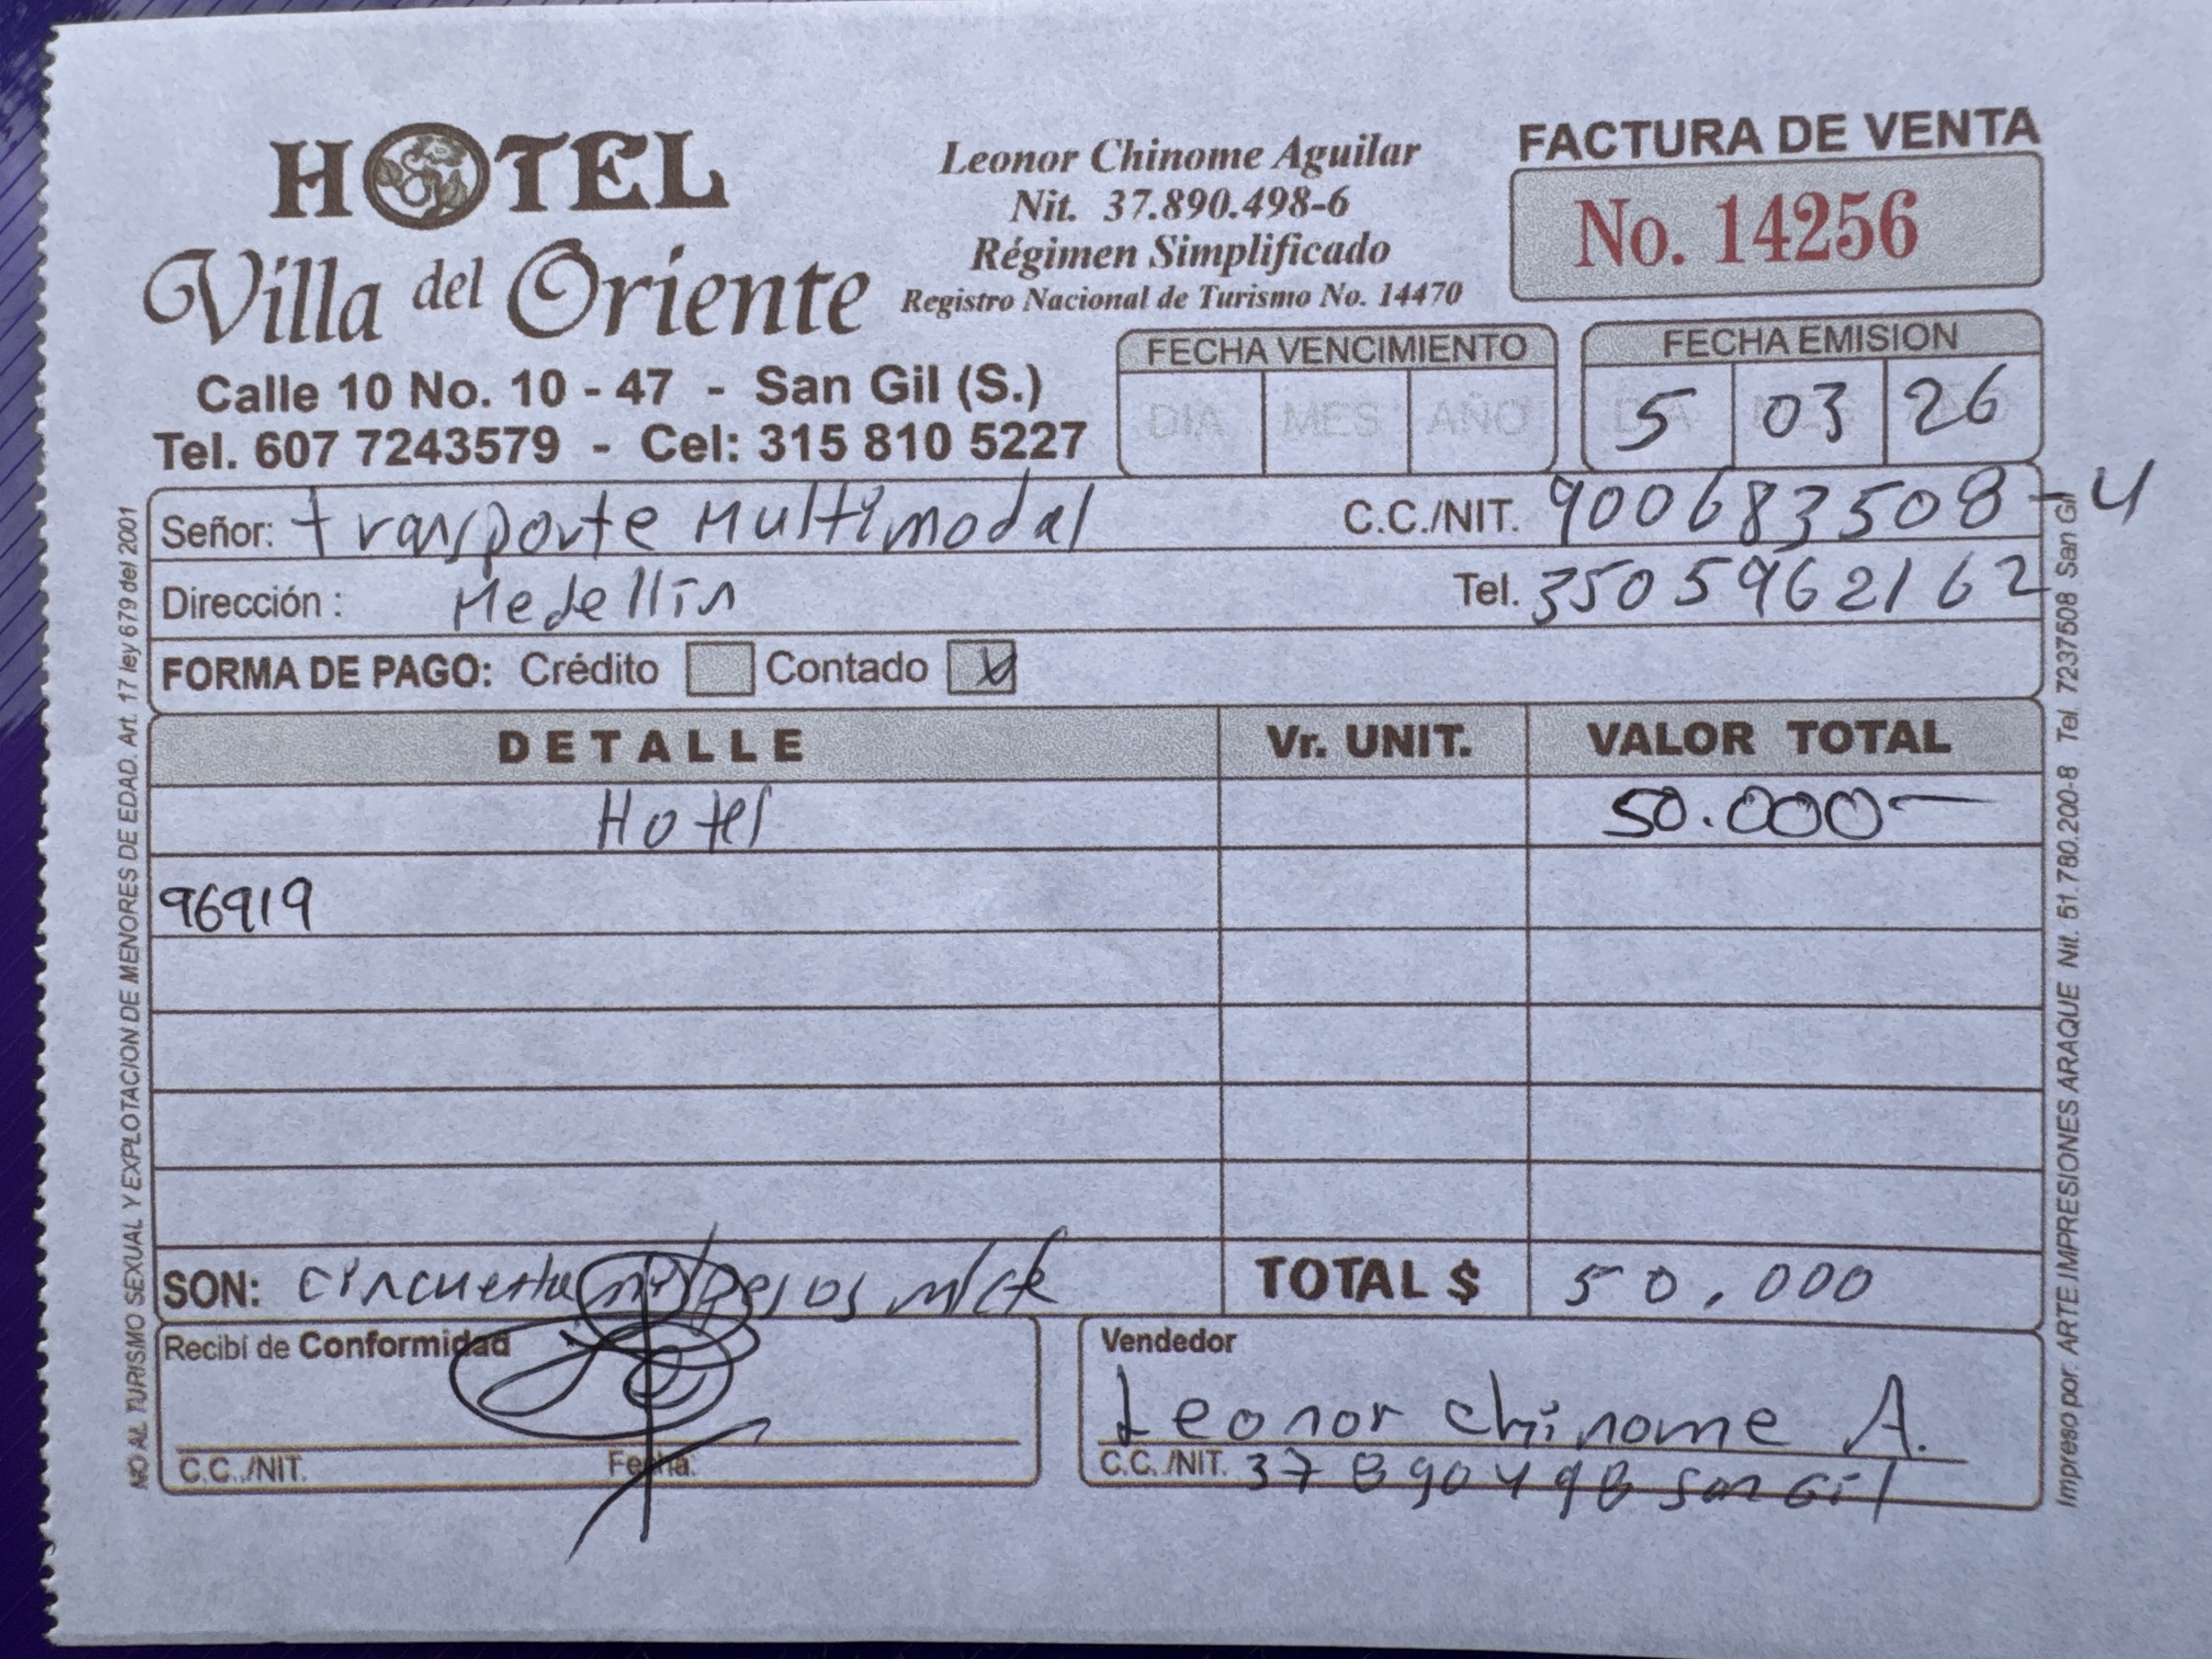 HOTEL
Villa del Oriente
Calle 10 No. 10 - 47 - San Gil (S.)
Tel. 607 7243579 - Cel: 315 810 5227
Leonor Chinome Aguilar
Nit. 37.890.498-6
Régimen Simplificado
Registro Nacional de Turismo No. 14470
FACTURA DE VENTA
No. 14256
FECHA VENCIMIENTO
DIA MES AÑO
FECHA EMISION
5 03 26
Señor: trasporte Multimodal C.C./NIT. 900683508-4
Dirección: Medellín Tel. 3505962162
FORMA DE PAGO: Crédito Contado
DETALLE Vr. UNIT. VALOR TOTAL
Hotel 50.000
96919
SON: cincuenta mil pesos m/cte TOTAL $ 50.000
Recibí de Conformidad
C.C./NIT. Fecha:
Vendedor
Leonor chinome A.
C.C./NIT. 37890498 San Gil
NO AL TURISMO SEXUAL Y EXPLOTACION DE MENORES DE EDAD. Art. 17 ley 679 del 2001
Impreso por: ARTE IMPRESIONES ARAQUE Nit. 51.780.200-8 Tel. 7237508 San Gil